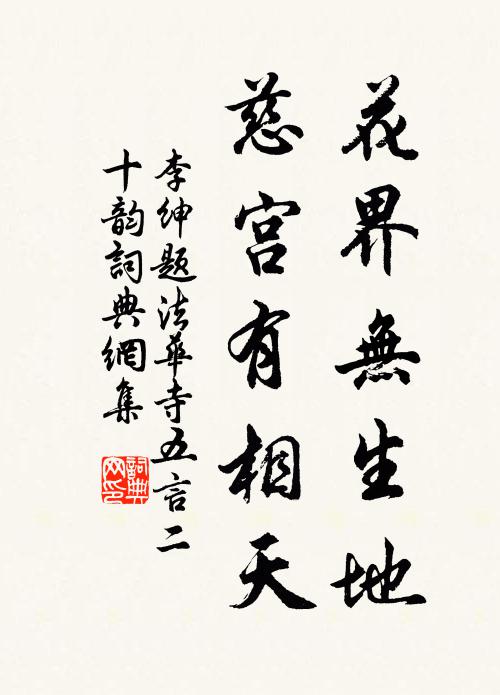 花界無生地
慈宫有相天
李紳题法華寺五言二
十韵詞典網集
詞典
网印